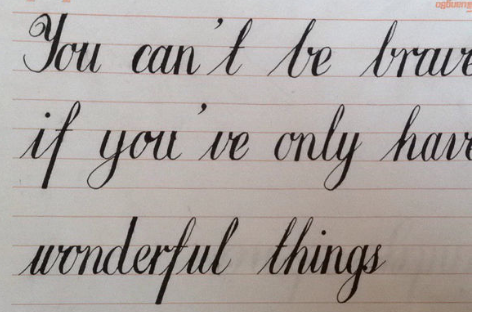 You can't be brave
if you've only have
wonderful things